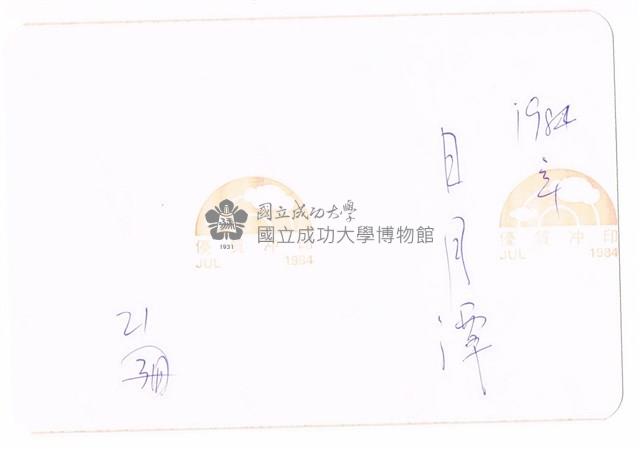 1984
年
日月潭
21
冊
國立成功大學
國立成功大學博物館
1931
優質冲印
JUL 1984
優質冲印
JUL 1984